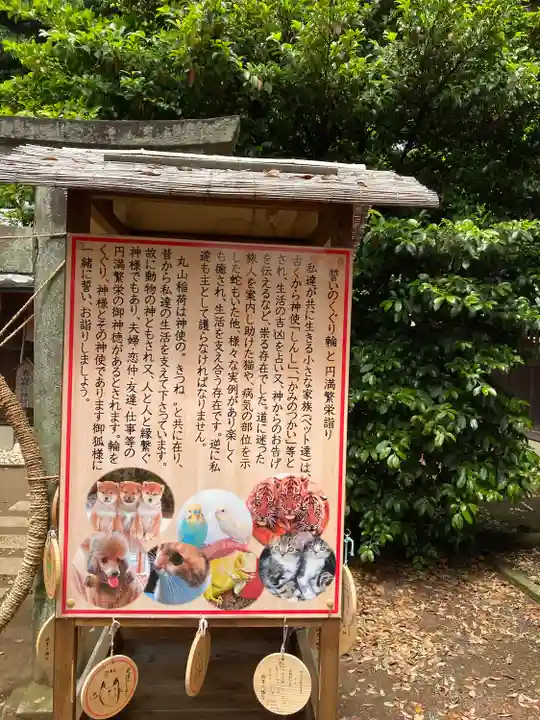 誓いのくぐり輪と円満繁栄詣り
私達が共に生きる小さな家族(ペット達)は
古くから神使「しんし」、「かみのつかい」等と
され、生活の吉凶を占い又、神からのお告げ
を伝えるなど、崇る存在でした。道に迷った
旅人を案内し助けた猫や、病気の部位を示
した蛇もいた他、様々な実例があり楽しく
も癒され、生活を支え合う存在です。逆に私
達も主として護らなければなりません。
丸山稲荷は神使の〝きつね〟と共に在り、
昔から私達の生活を支えて下さっています。
故に動物の神ともされ又、人と人と縁繋ぐ
神様でもあり、夫婦・恋仲・友達・仕事等の
円満繁栄の御神徳があるとされます。輪を
くぐり、神様とその神使であります御狐様に
一緒に誓い、お詣りしましょう。